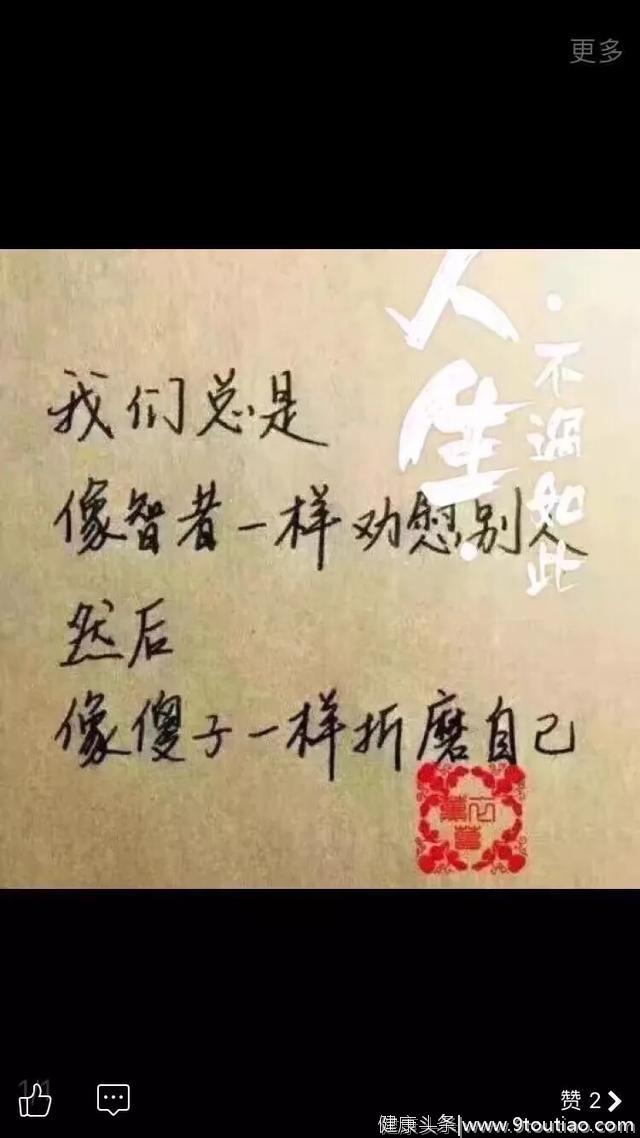 更多
人生
·不过如此
我们总是
像智者一样劝慰别人
然后
像傻子一样折磨自己
1/1
赞 2
健康头条|www.9toutiao.com